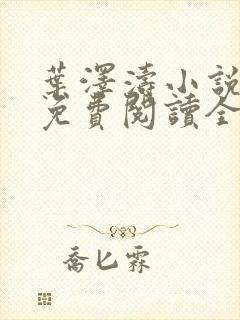 葉澤濤小說
免費閱讀全
喬匕霖